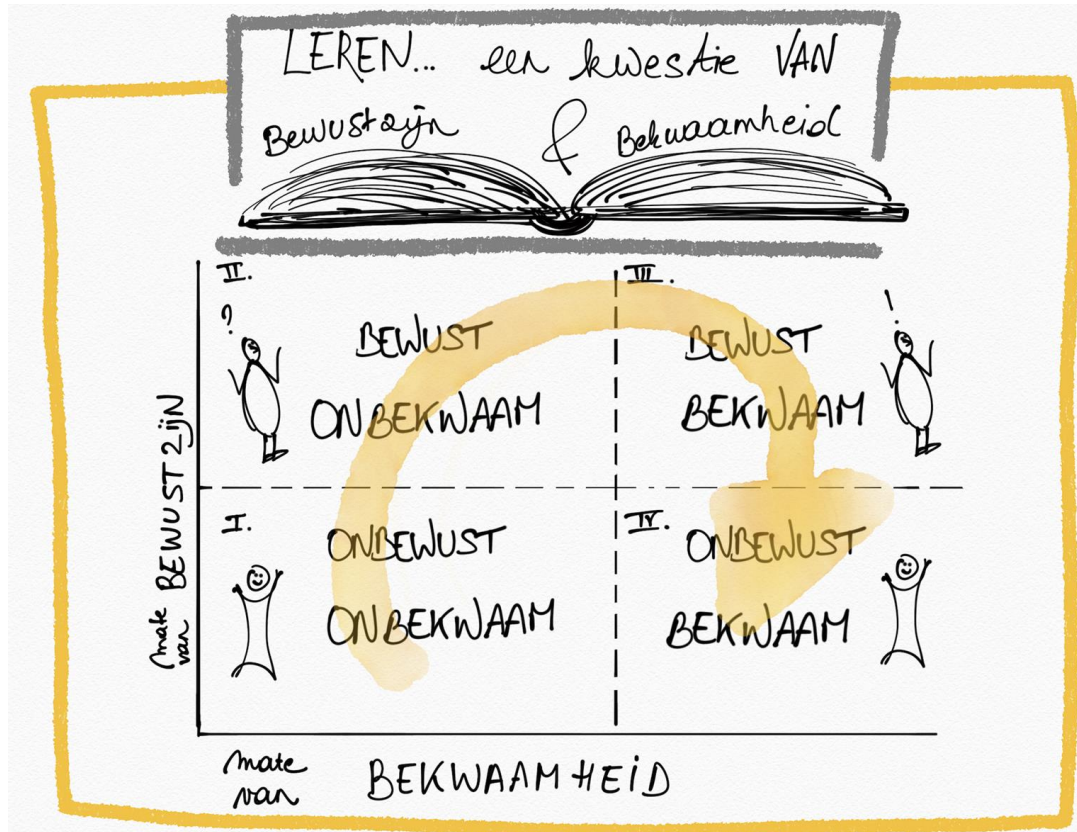 LEREN... een kwestie VAN
Bewustzijn & Bekwaamheid
II.
?
BEWUST
ONBEKWAAM
III.
!
BEWUST
BEKWAAM
I.
ONBEWUST
ONBEKWAAM
IV.
ONBEWUST
BEKWAAM
mate
van BEWUSTZIJN
mate
van BEKWAAMHEID